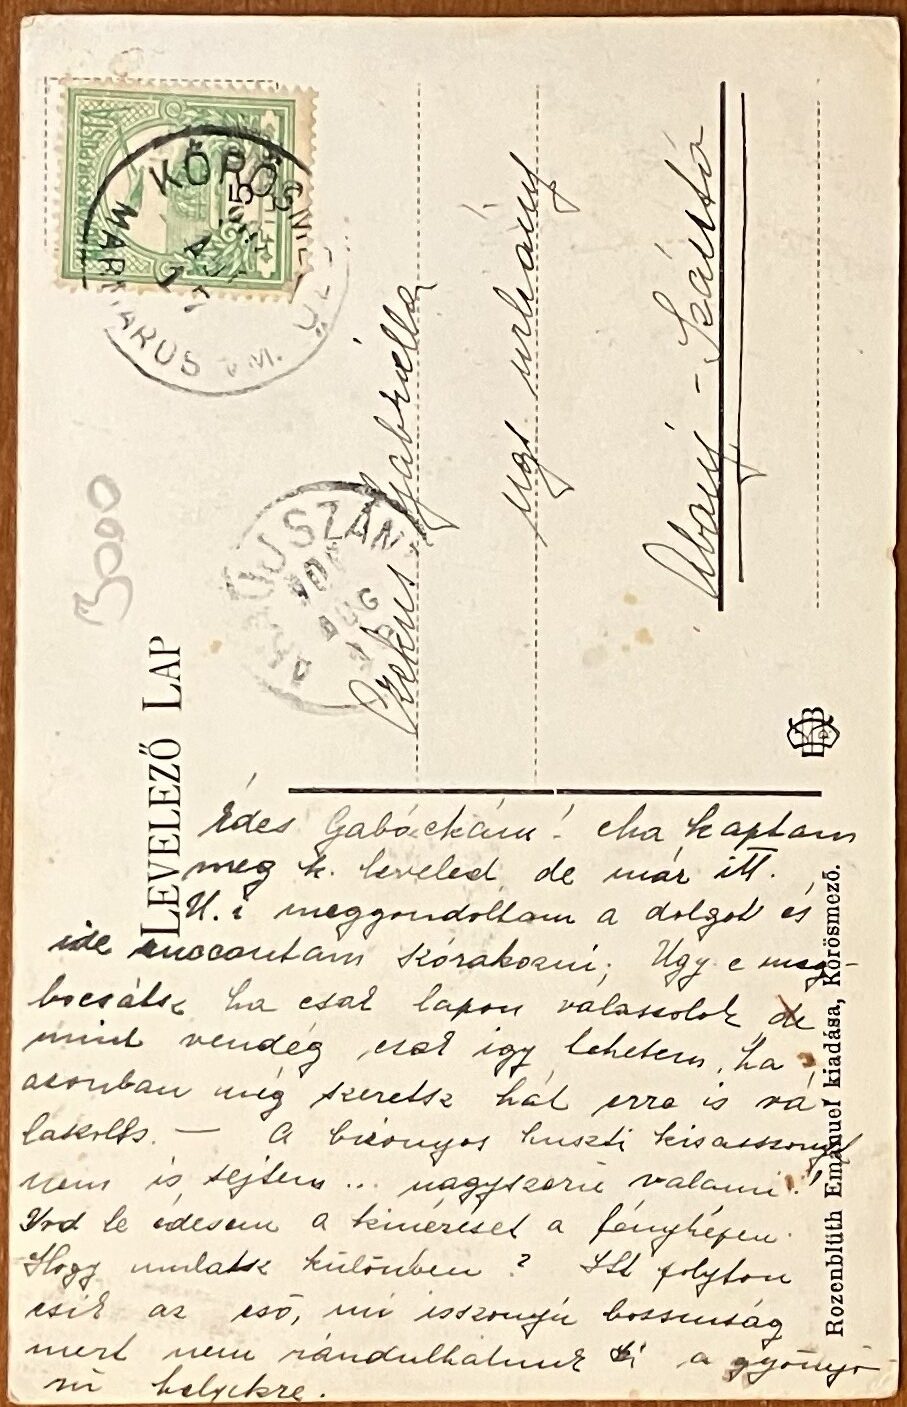 LEVELEZŐ LAP
MAGYAR KIR. POSTA
KŐRÖSMEZŐ
MÁRMAROS VM.
Gabriella
úrleány
Abauj-Szántó
3000
Édes Gabóckám! Ma kaptam
meg k. leveled, de már itt.
U.i meggondoltam a dolgot és
ide ruccantam kórakozni; Ugy e meg-
bocsátsz ha csak lapon válaszolok, de
mint vendég csak igy tehetem, ha
azonban még szeretsz hát erre is vá
laszolsz. — A bizonyos huszti kisasszonyt
nem is sejtem... nagyszerü valami!
Ird le édesem a kinézését a fényképen.
Hogy mulatsz különben? Itt folyton
esik az eső, mi isszonyú bosszuság
mert nem rándulhatunk ki a gyönyö
rü helyekre.
Rozenblüth Emánuel kiadása, Körösmező.